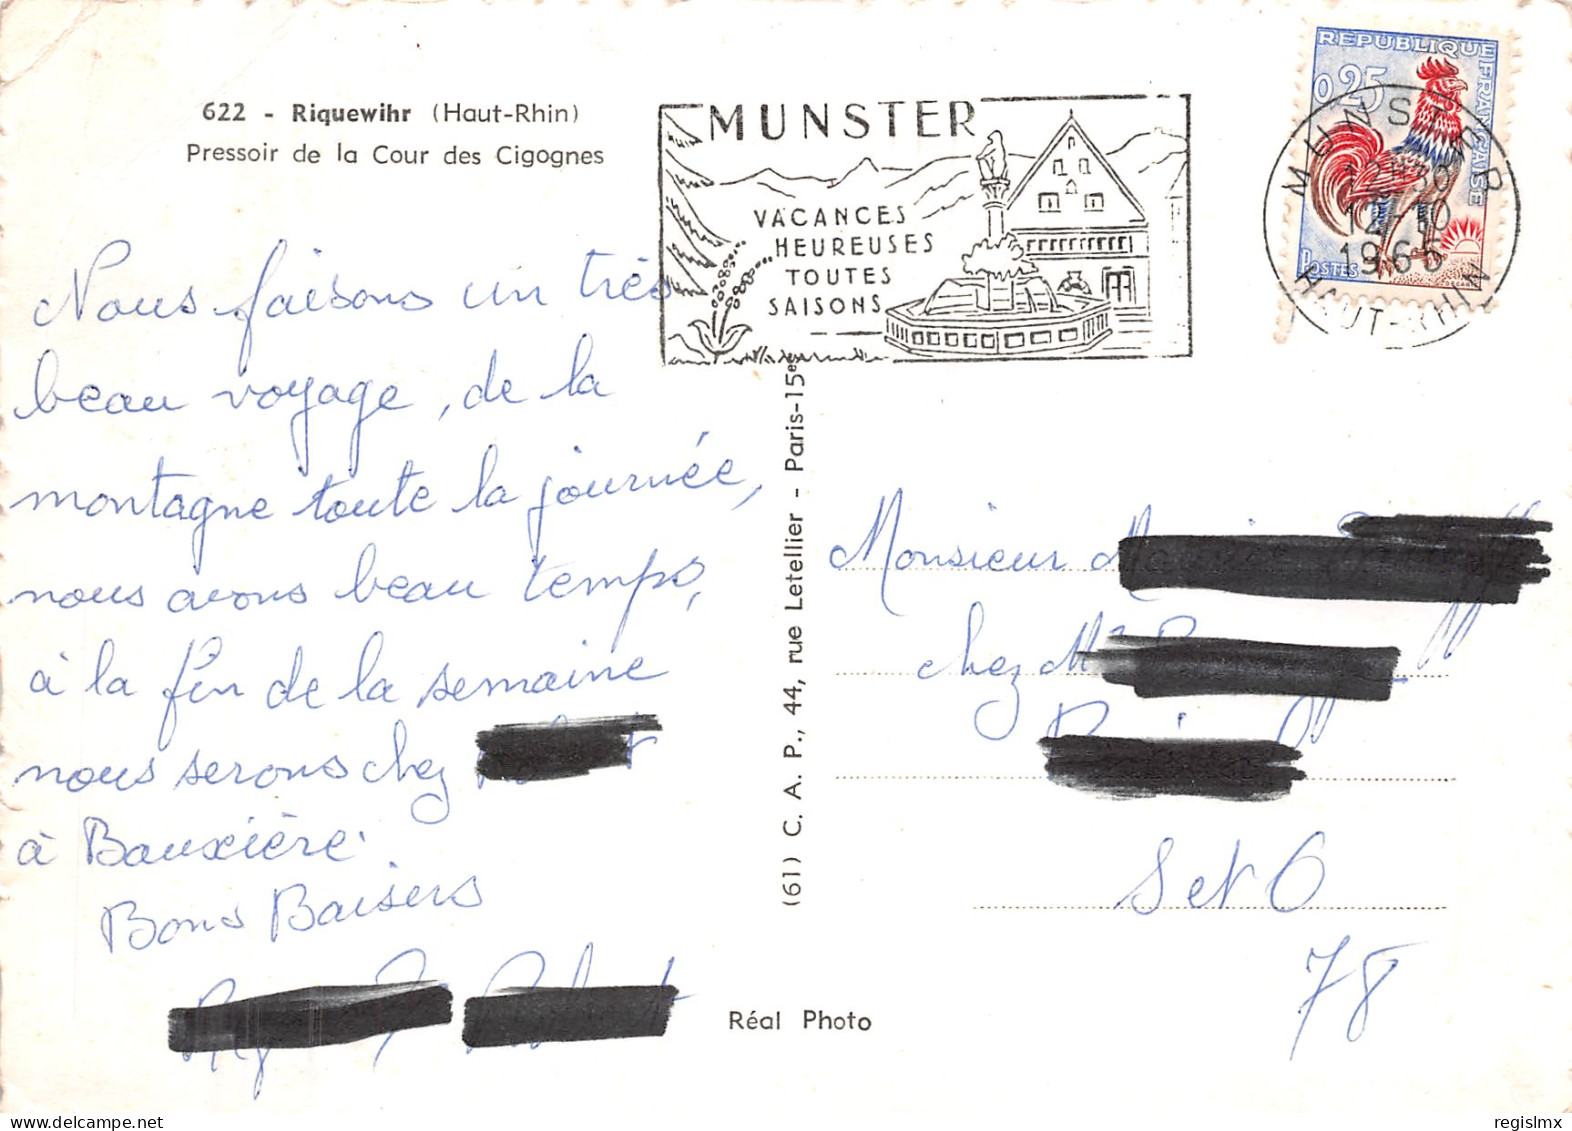 622 - Riquewihr (Haut-Rhin)
Pressoir de la Cour des Cigognes
MUNSTER
VACANCES
HEUREUSES
TOUTES
SAISONS
REPUBLIQUE FRANÇAISE
0,25
POSTES
MUNSTER
12H30
12-10
1965
HAUT-RHIN
Nous faisons un très
beau voyage, de la
montagne toute la journée,
nous avons beau temps,
à la fin de la semaine
nous serons chez
à Bauxière.
Bons Baisers
(61) C. A. P., 44, rue Letellier - Paris-15e
Réal Photo
Monsieur
chez
S et O
78
regislmx